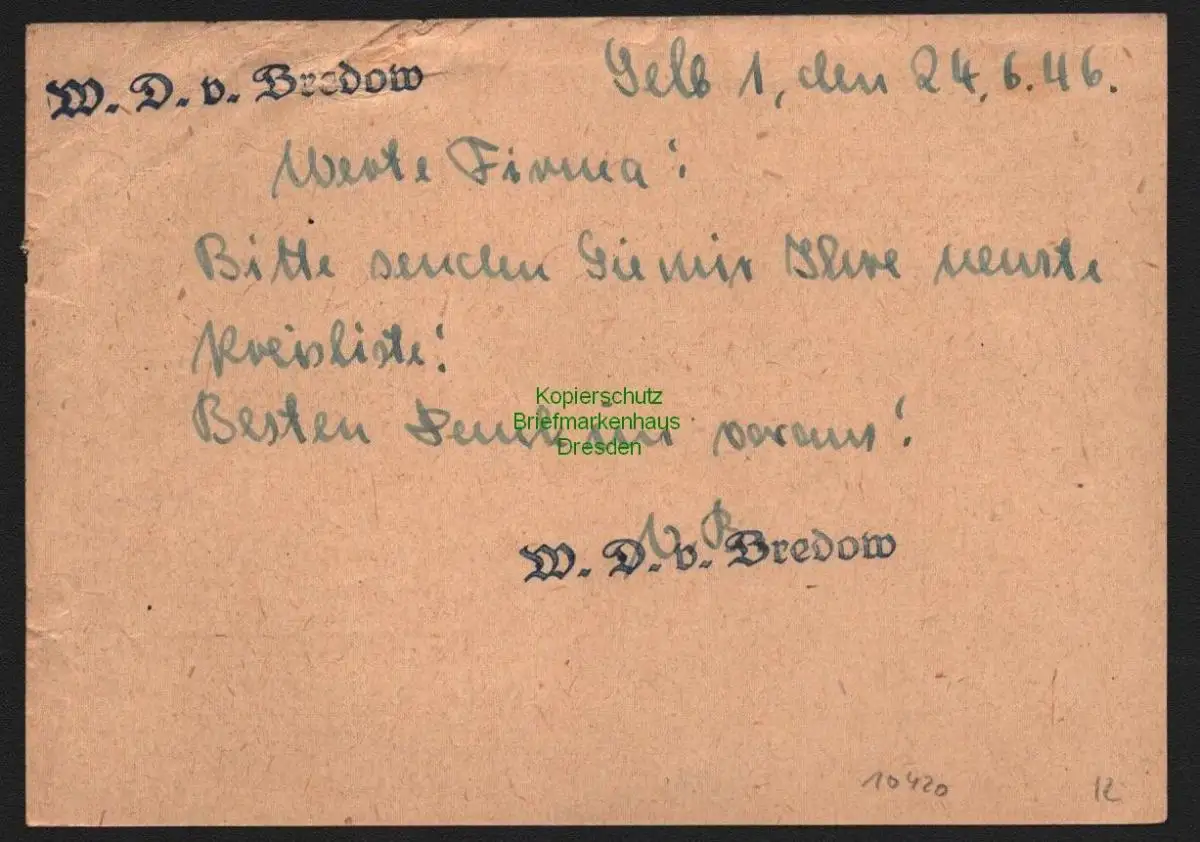 W. D. v. Bredow
Selb 1, den 24.6.46.
Werte Firma!
Bitte senden Sie mir Ihre neuste
Preisliste!
Besten Dank im voraus!
Kopierschutz
Briefmarkenhaus
Dresden
v. B
W. D. v. Bredow
10420
12